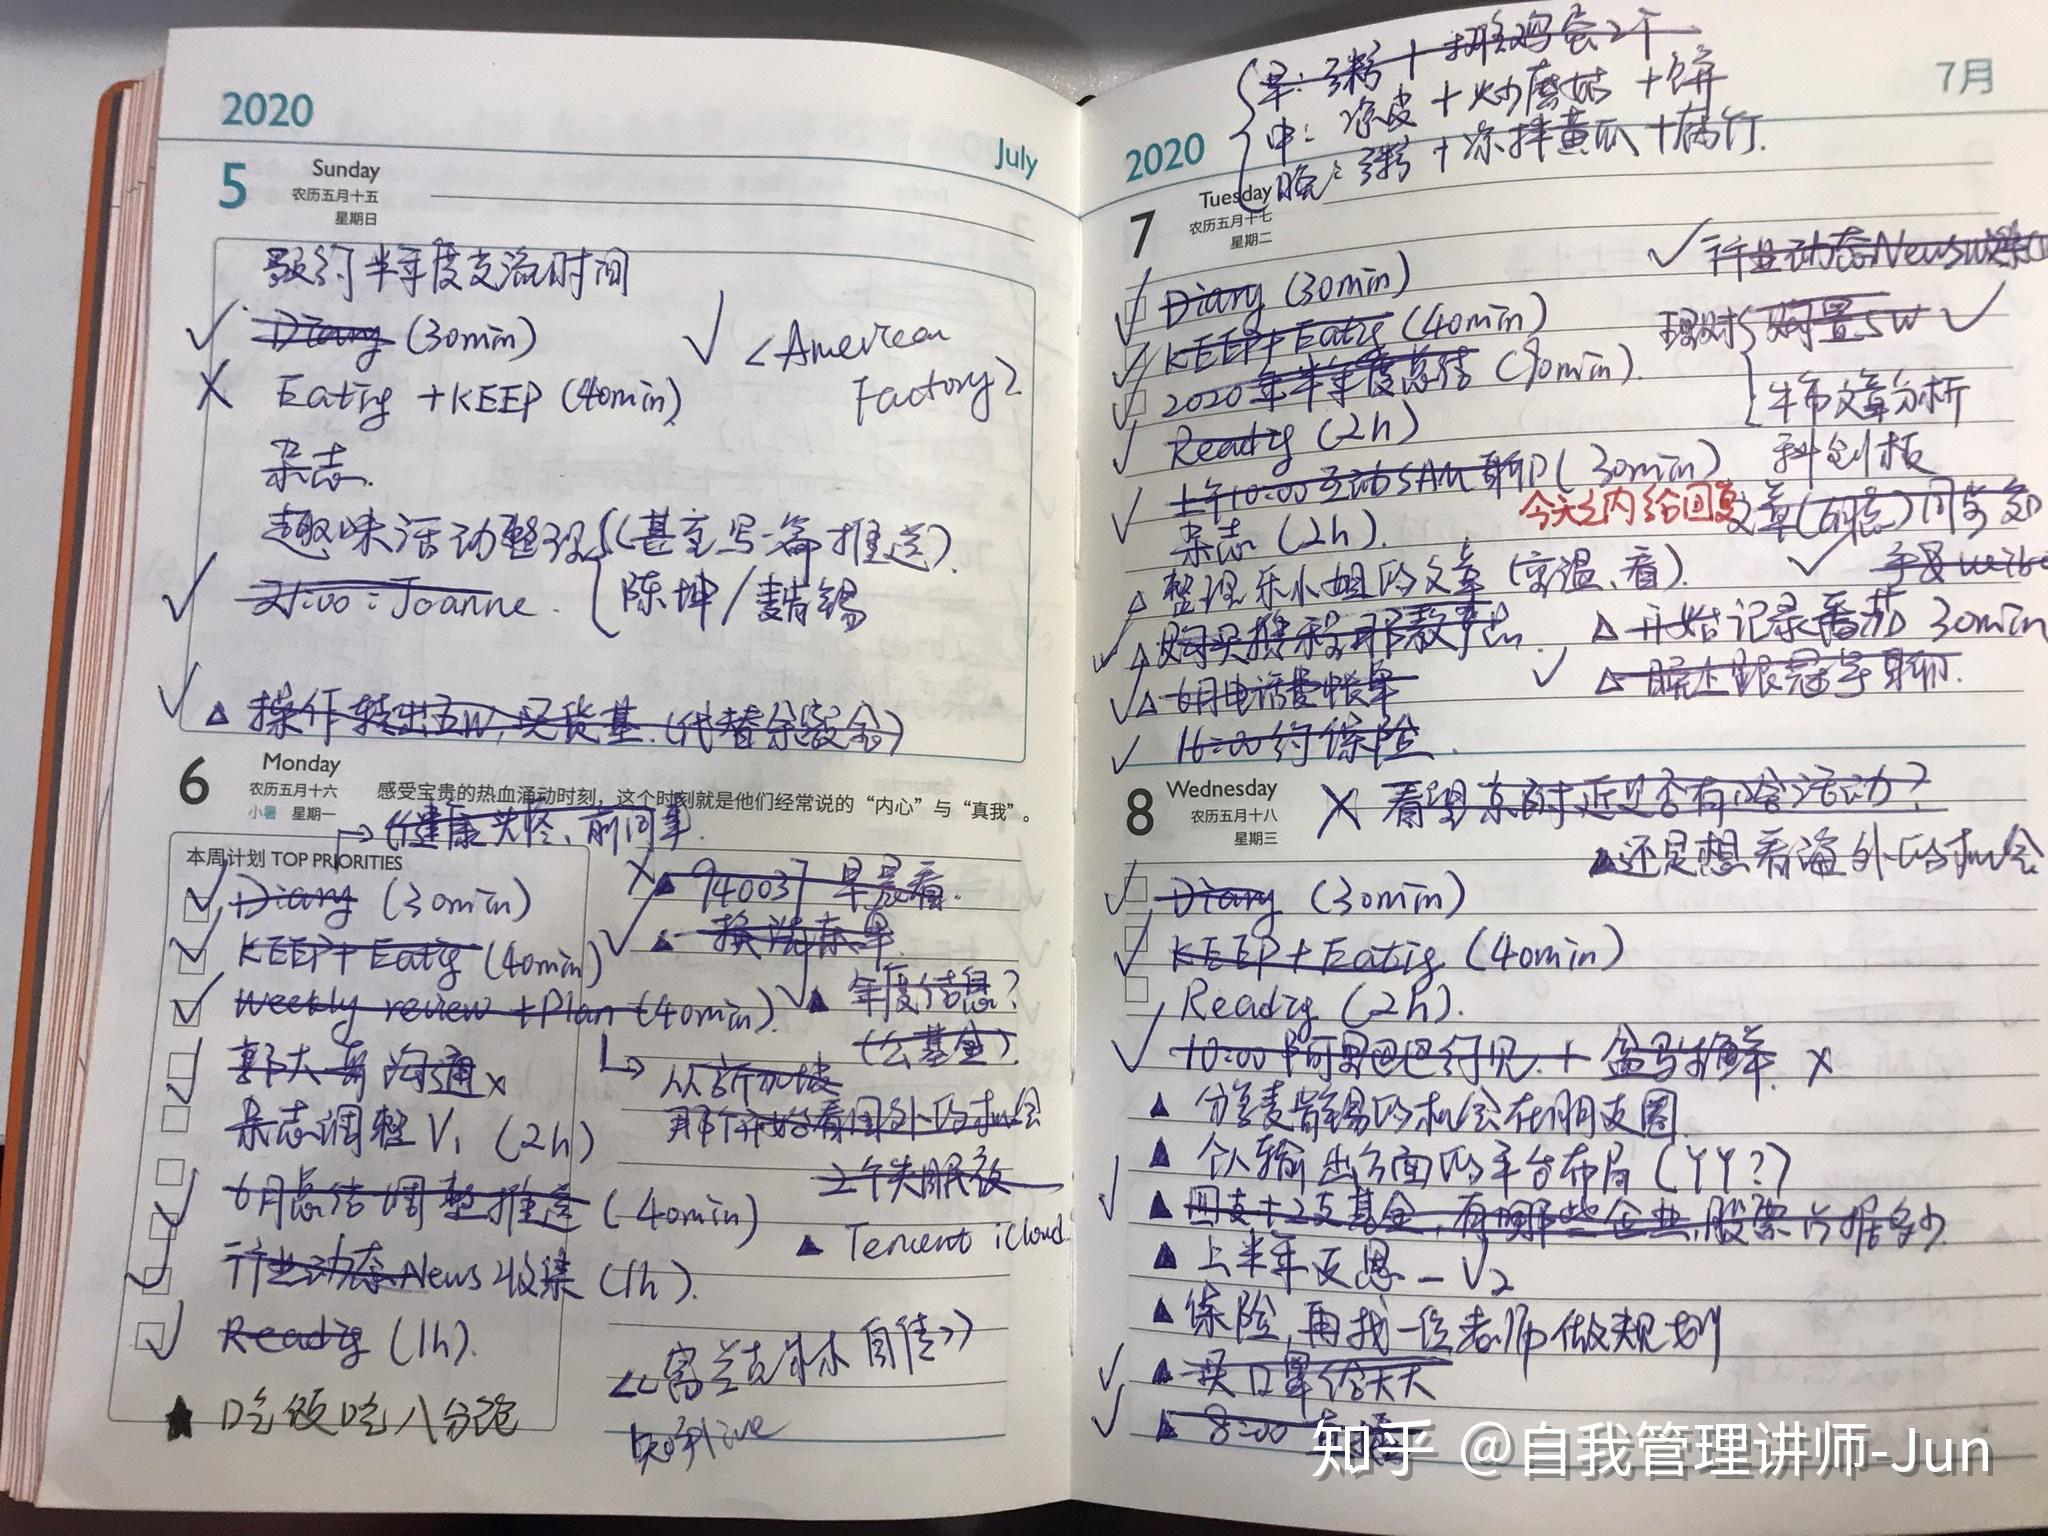 2020
July
5
Sunday
农历五月十五
星期日
预约半年度交流时间
Diary (30min)
<American
Factory>
Eatig +KEEP (40min)
杂志.
趣味活动整理 (甚至写一篇推送).
21:00: Joanne.
陈坤/麦肯锡
操作转出5W,买货基.(代替余额宝)
6
Monday
农历五月十六
小暑 星期一
感受宝贵的热血涌动时刻，这个时刻就是他们经常说的“内心”与“真我”。
健康关怀、前同事.
本周计划 TOP PRIORITIES
Diary (30min)
KEEP+Eatig (40min)
Weekly review +Plan (40min).
郭大哥沟通x
杂志调整 V1 (2h)
6月总结调整推送 (40min)
行业动态News收集 (1h).
Readig (1h).
★ 吃饭吃八分饱
94003 早晨看.
换洗衣服
年度结息?
(么基金)
从新加坡
那个开始看国外的机会
Tencent iCloud
<<富兰克林自传>>
知乎live
2020
7月
早: 粥+ 鸡蛋2个
中: 凉皮+炒蘑菇+饼
晚: 粥+凉拌黄瓜+腐竹.
7
Tuesday
农历五月十七
星期二
行业动态News收集
Diary (30min)
KEEP+Eatig (40min)
2020年半年度总结 (90min).
Readig (2h)
上午10:00互动SAM聊 (30min)
杂志 (2h).
理财
购置5W
牛市文章分析
科创板
今天之内给回复
文章(研究)同步
整理乐小姐的文章 (字温、看).
6月电话费帐单
16:00约保险.
手足weibo
开始记录番茄 30min
8
Wednesday
农历五月十八
星期三
看望京附近是否有啥活动?
还是想看海外的机会
Diary (30min)
KEEP+Eatig (40min)
Readig (2h).
10:00阿里巴巴约见.+盒马 鲜. x
分享麦肯锡的机会在朋友圈
个人输出方面的平台布局 (YY?)
四支+2支基金,有哪些企业,股票占据多少
上半年反思-V2
保险,再找一位老师做规划
买口罩给天天
8:00 直播
知乎 @自我管理讲师-Jun